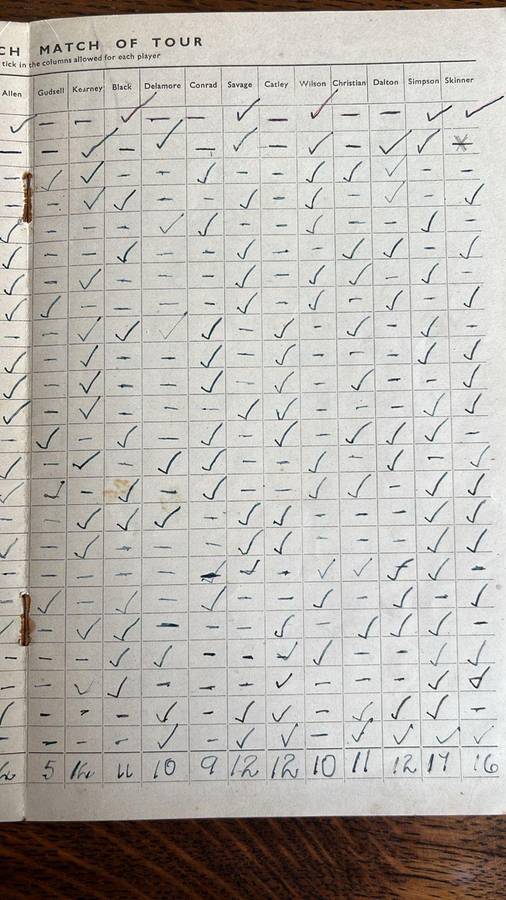 CH MATCH OF TOUR
tick in the columns allowed for each player
Allen Gudsell Kearney Black Delamore Conrad Savage Catley Wilson Christian Dalton Simpson Skinner
5 14 11 10 9 12 12 10 11 12 17 16